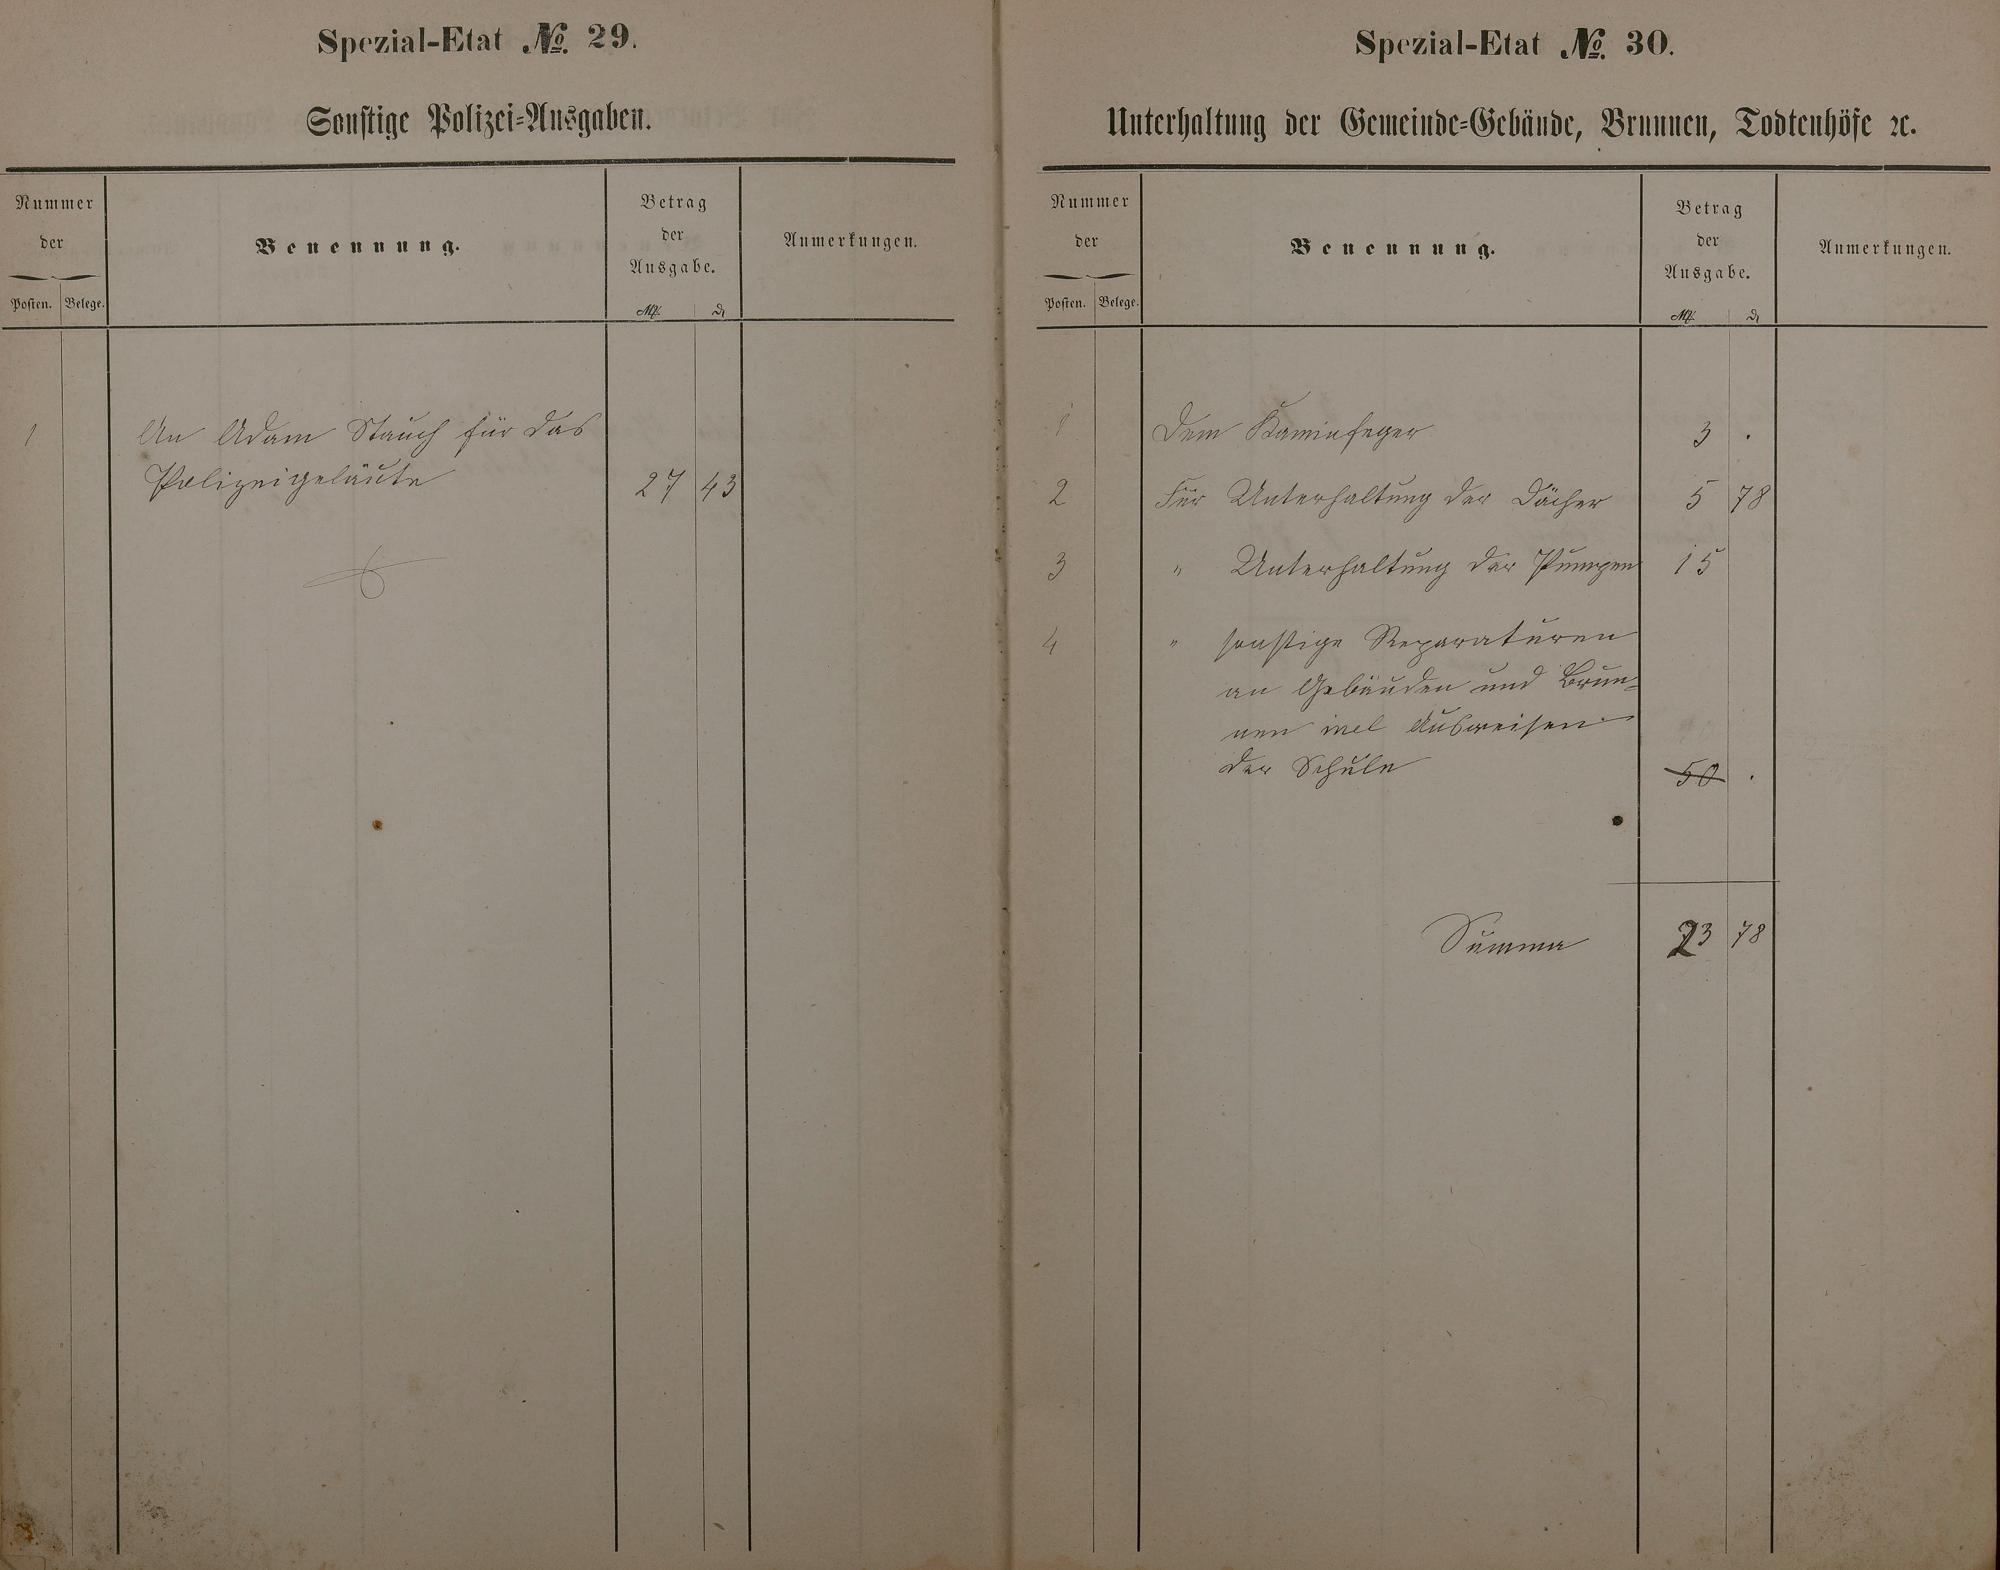 Spezial-Etat № 29.
Sonstige Polizei-Ausgaben.
Nummer
der
Posten. Belege.
Benennung.
Betrag
der
Ausgabe.
M. ₰
Anmerkungen.
1 An Adam Stauch für das
Polizeigeläute 27 43
Spezial-Etat № 30.
Unterhaltung der Gemeinde-Gebäude, Brunnen, Todtenhöfe ꝛc.
Nummer
der
Posten. Belege.
Benennung.
Betrag
der
Ausgabe.
M. ₰
Anmerkungen.
1 Dem Kaminfeger 3 .
2 Für Unterhaltung der Dächer 5 78
3 " Unterhaltung der Pumpen 15
4 " sonstige Reparaturen
an Gebäuden und Brun-
nen incl Ausweisen
der Schule 50 .
Summa 23 78